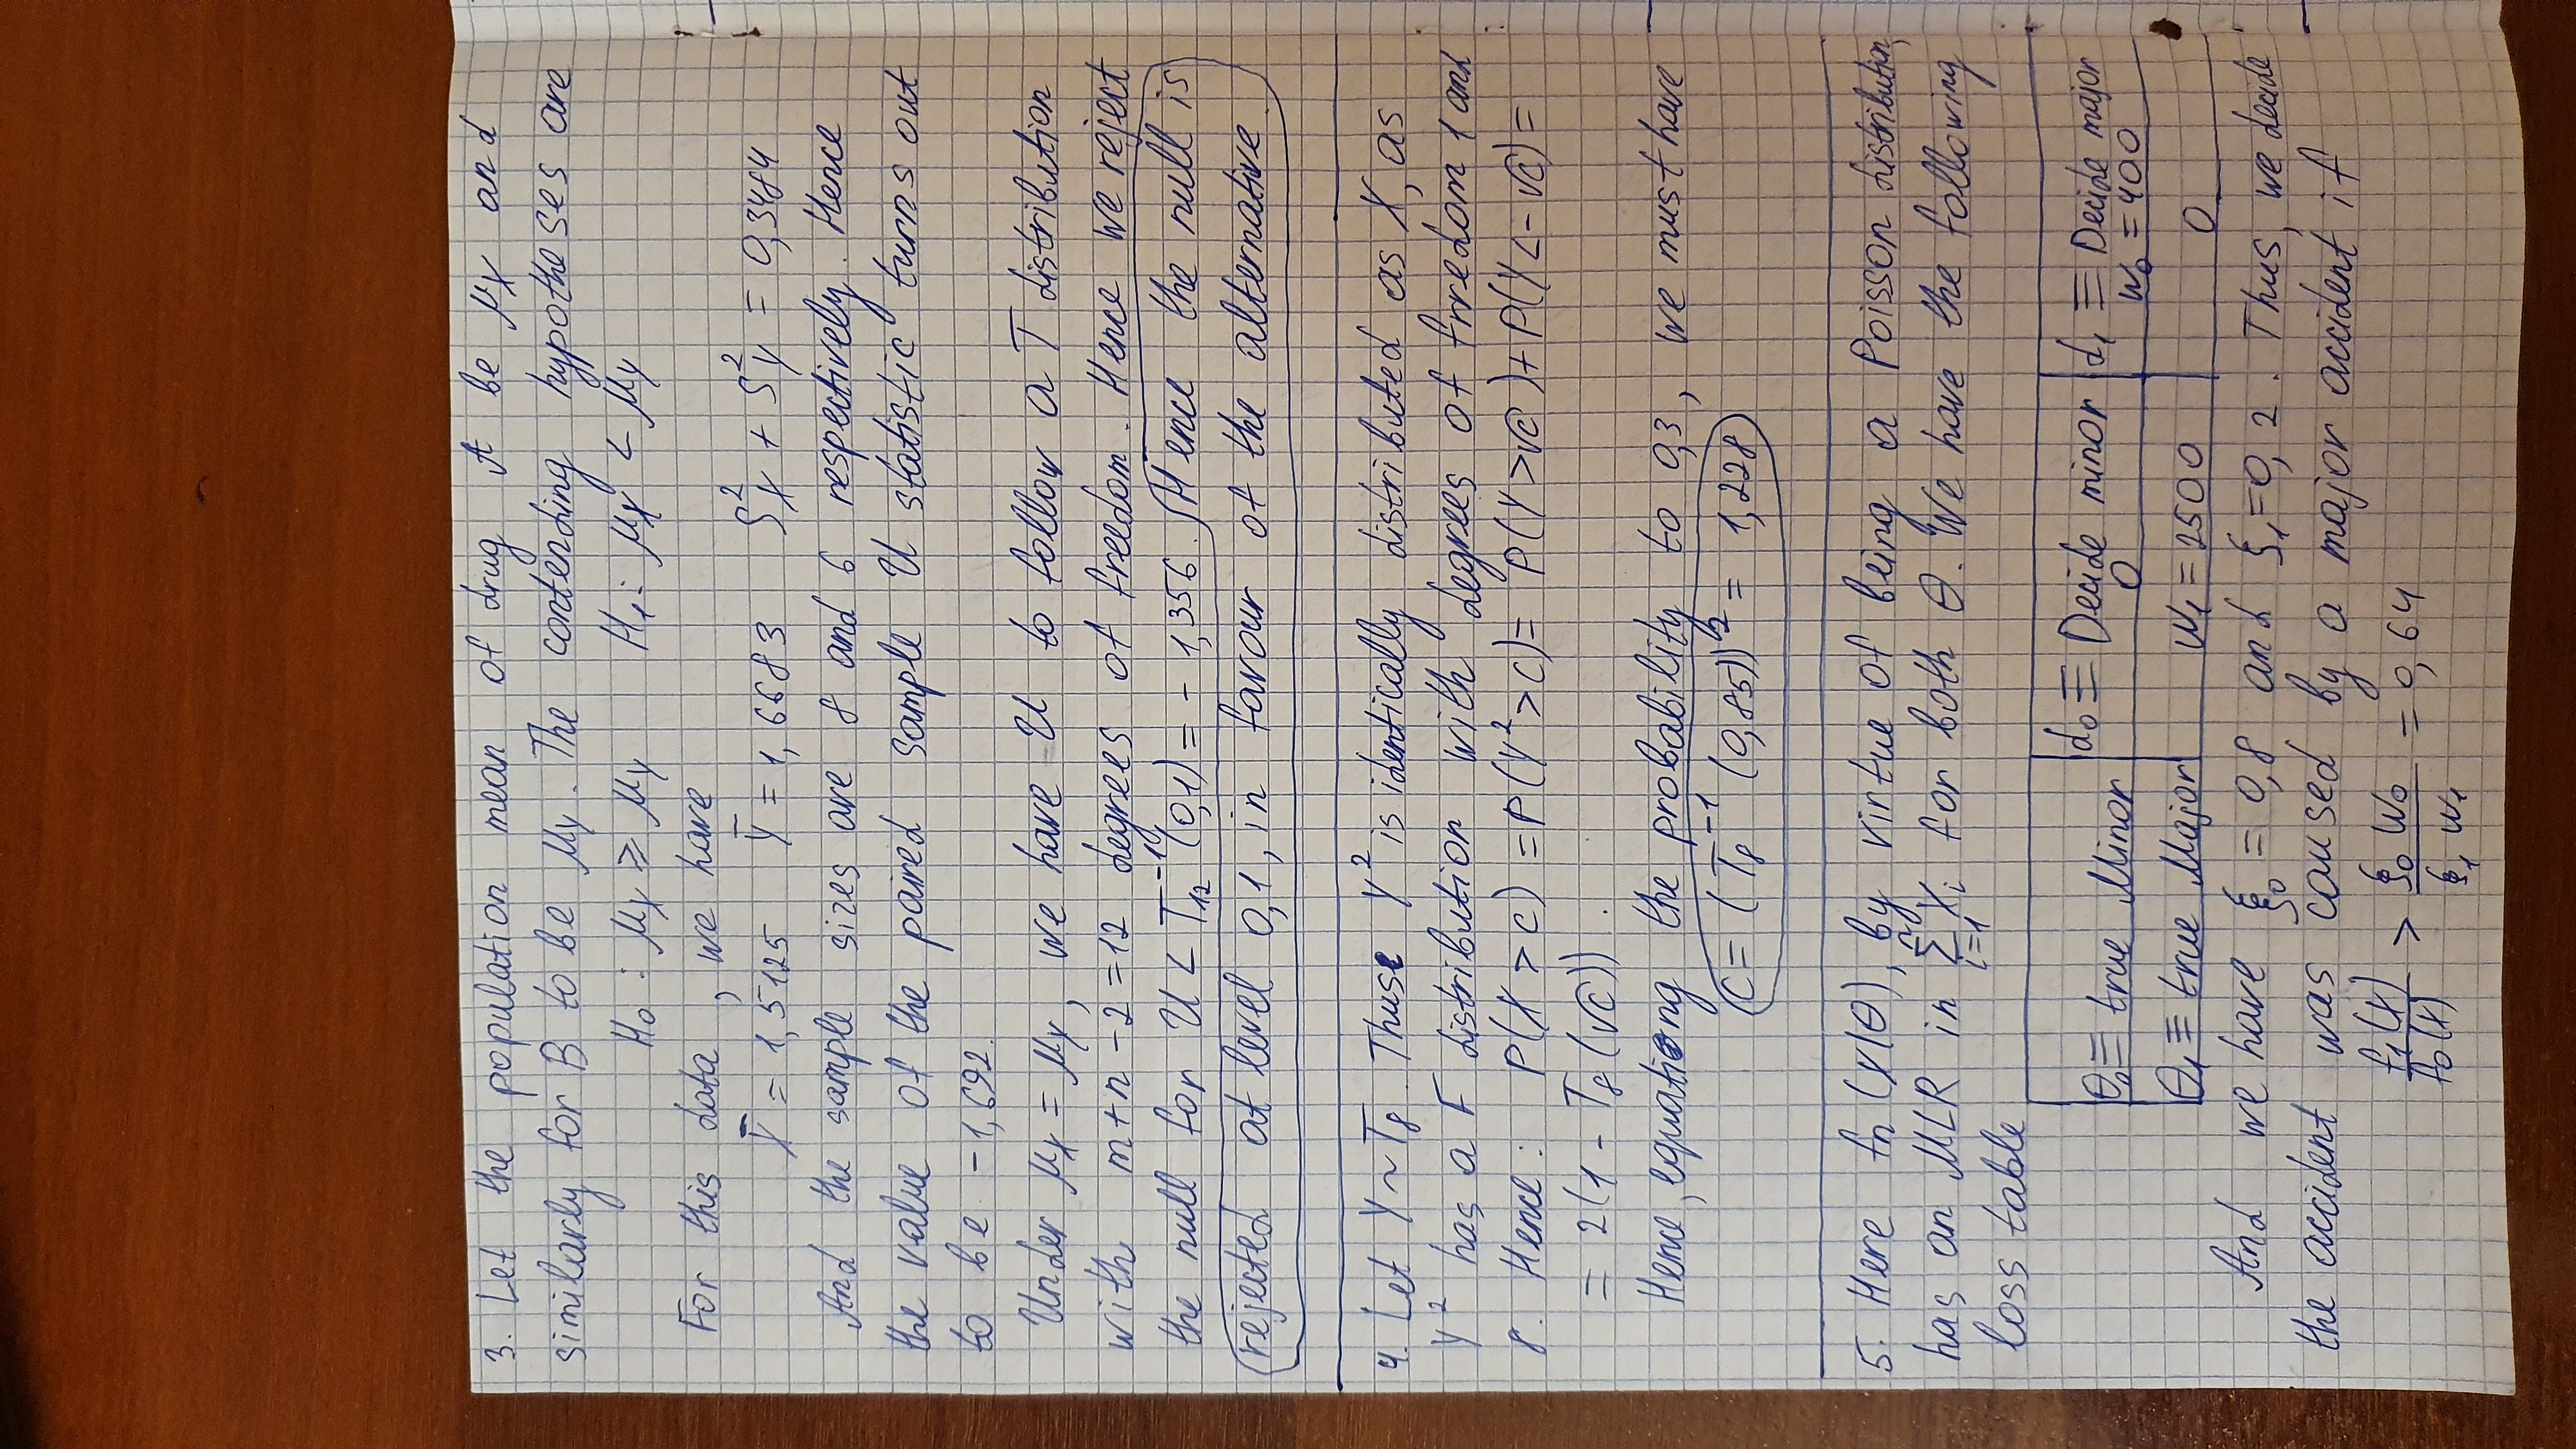 3. Let the population mean of drug A be μ_X and
similarly for B to be μ_Y. The contending hypotheses are
H₀ : μ_X ≥ μ_Y H₁ : μ_X < μ_Y
For this data, we have
X̄ = 1,5125 Ȳ = 1,6683 S²_X + S²_Y = 0,3484
And the sample sizes are 8 and 6 respectively. Hence
the value of the paired sample U statistic turns out
to be -1,692.
Under μ_X = μ_Y, we have U to follow a T distribution
with m+n-2=12 degrees of freedom. Hence we reject
the null for U < T₁₂⁻¹(0,1) = -1,356. Hence the null is
rejected at level 0,1, in favour of the alternative.
4. Let Y ~ T₈. Thuse Y² is identically distributed as X, as
Y² has a F distribution with degrees of frredom 1 and
8. Hence: P(X > c) = P(Y² > c) = P(Y > √c) + P(Y < -√c) =
= 2(1 - T₈(√c)).
Hence, equationg the probability to 0,3, we must have
c = (T₈⁻¹ (0,85))² = 1,228
5. Here fn (X|θ), by virtue of being a Poisson distribution,
has an MLR in Σⁿᵢ₌₁ Xᵢ for both θ. We have the following
loss table
d₀ ≡ Decide minor d₁ ≡ Decide major
θ₀ ≡ true Minor 0 w₀ = 400
θ₁ ≡ true Major w₁ = 2500 0
And we have ξ₀ = 0,8 and ξ₁ = 0,2. Thus, we decide
the accident was caused by a major accident if
f₁(X)/f₀(X) > ξ₀ w₀/ξ₁ w₁ = 0,64